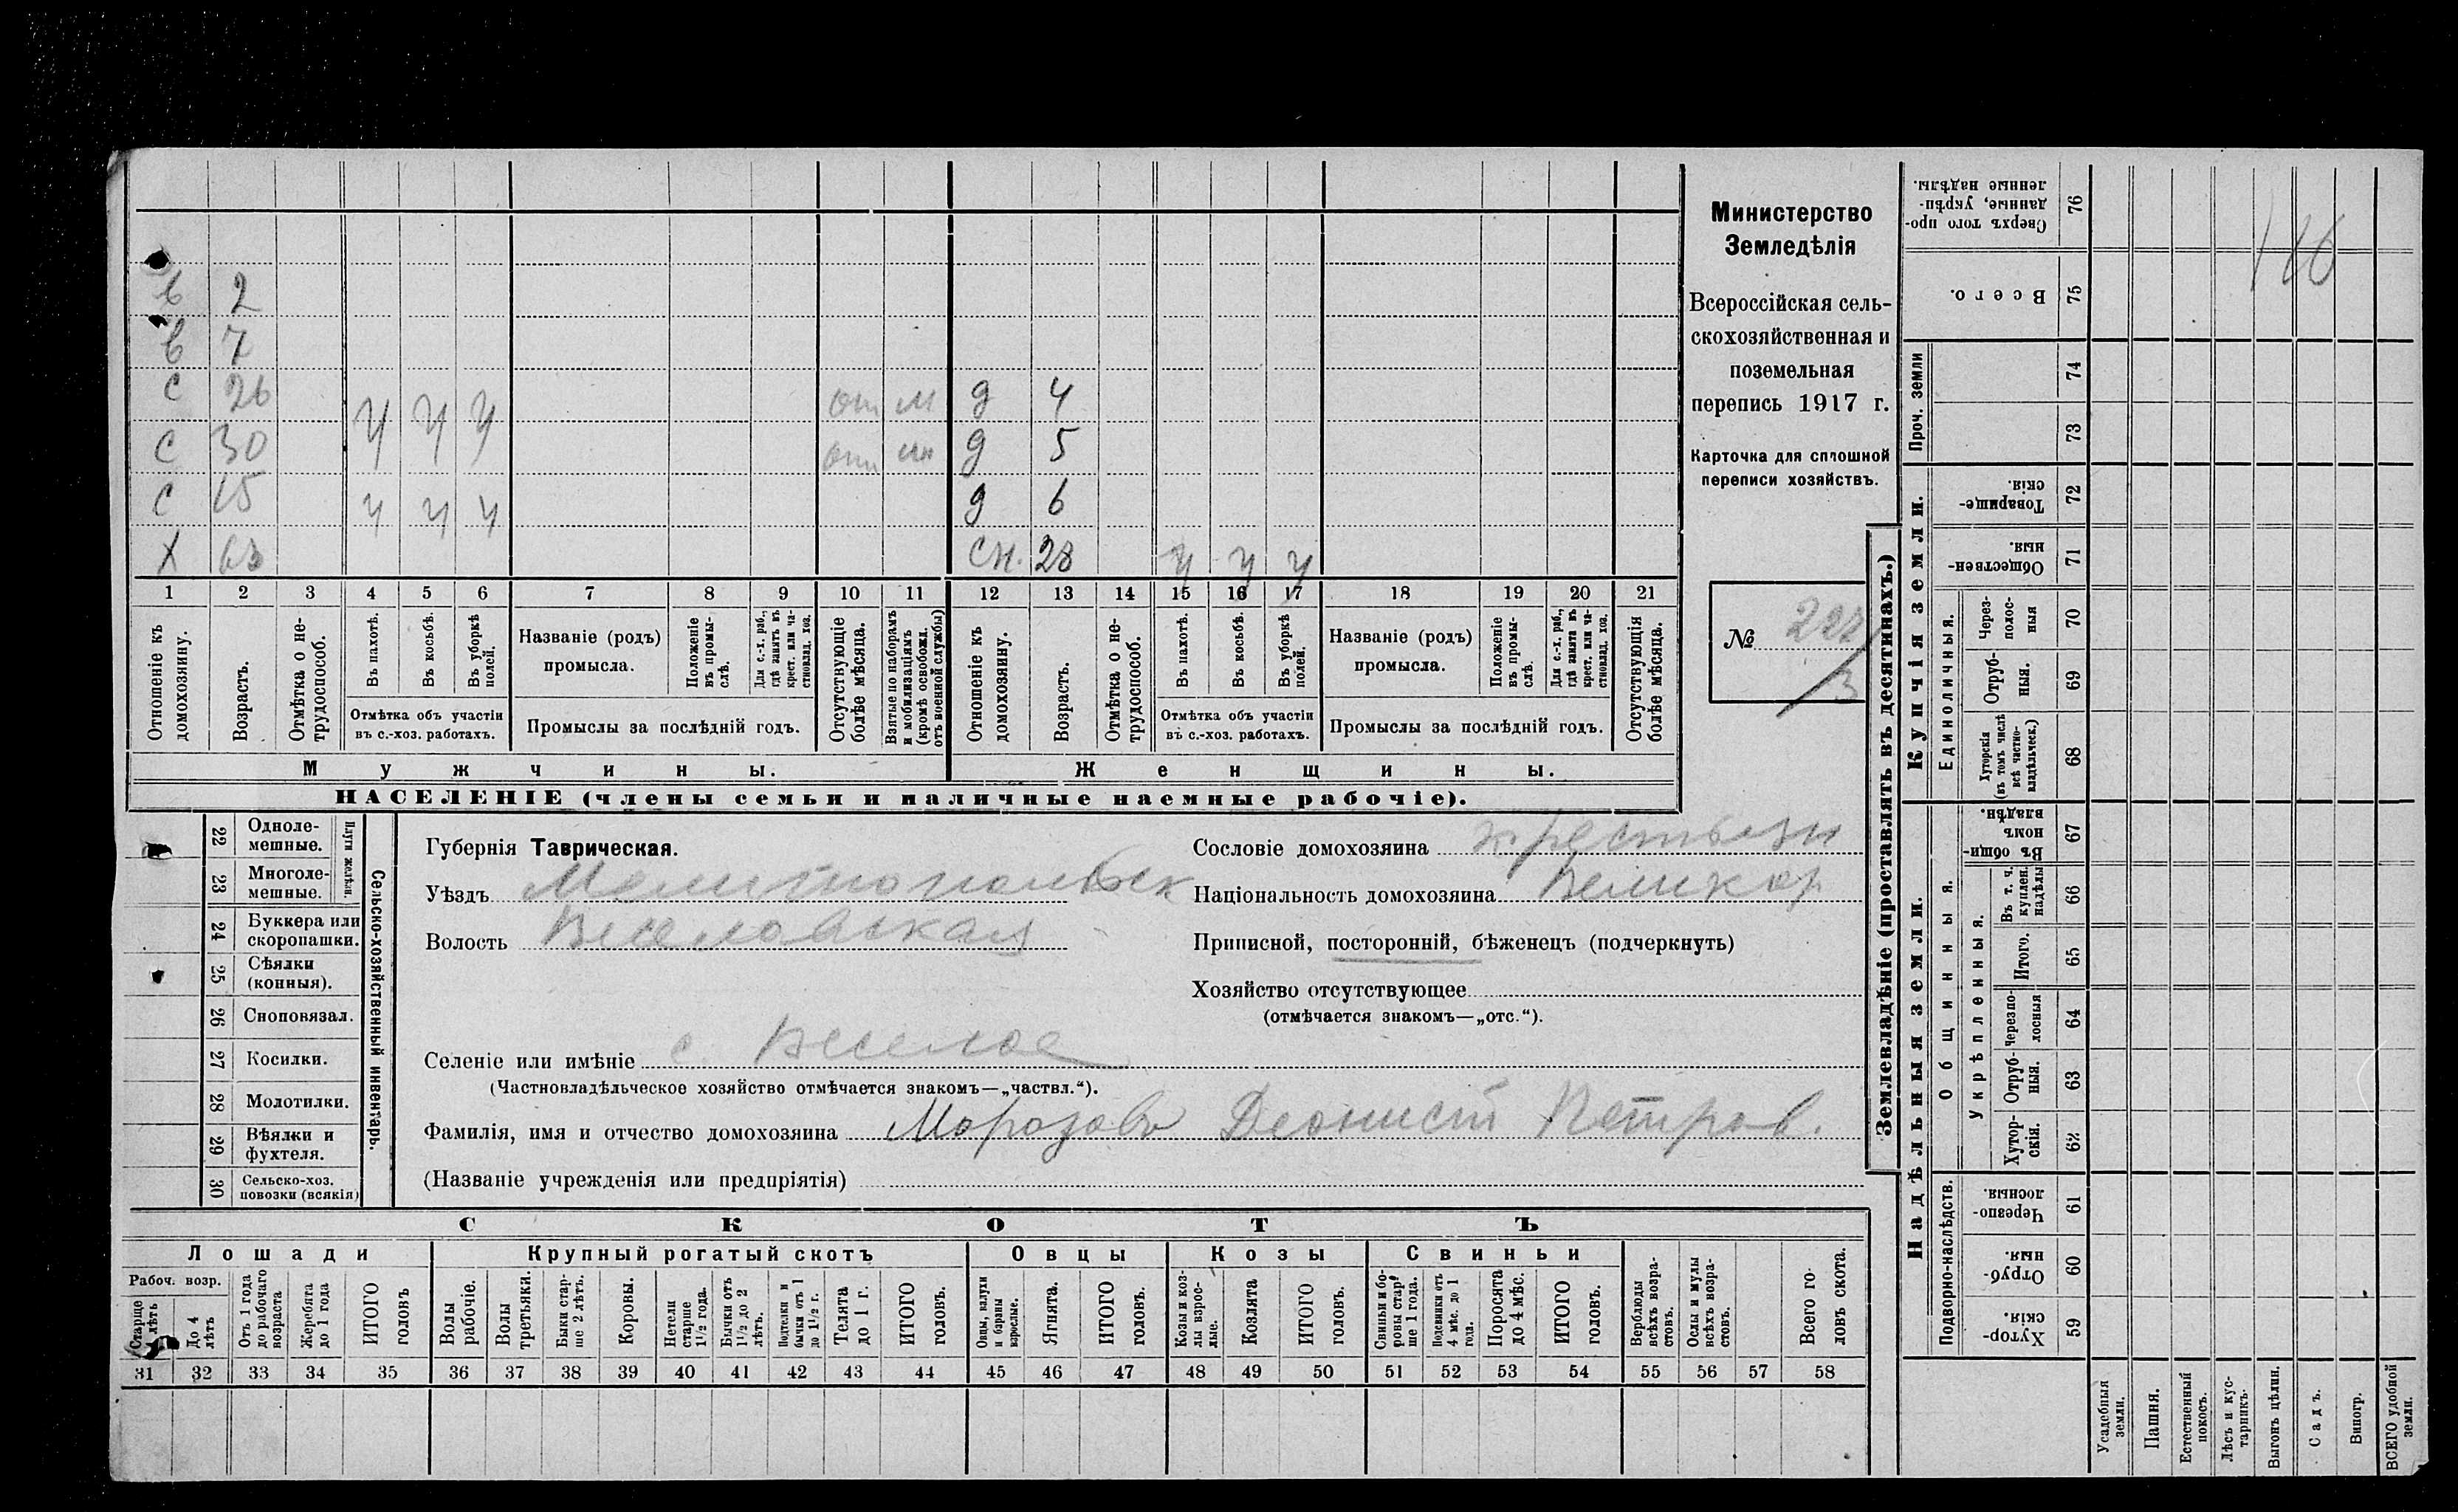 в 2
в 7
с 26 от м д 4
с 30 у у у от мн д 5
с 15 у у у д 6
х 63 сн. 28 у у у
1 2 3 4 5 6 7 8 9 10 11 12 13 14 15 16 17 18 19 20 21
Отношеніе къ домохозяину.
Возрастъ.
Отмѣтка о не-
трудоспособ.
Въ пахотѣ.
Въ косьбѣ.
Въ уборкѣ
полей.
Отмѣтка объ участіи
въ с.-хоз. работахъ.
Названіе (родъ)
промысла.
Положеніе
въ промы-
слѣ.
Для с.-х. раб.,
гдѣ занятъ въ
крест. или ча-
стновлад. хоз.
Промыслы за послѣдній годъ.
Отсутствующіе
болѣе мѣсяца.
Взятые по наборамъ
и мобилизаціямъ
(кромѣ освобожд.
отъ военной службы)
Отношеніе къ
домохозяину.
Возрастъ.
Отмѣтка о не-
трудоспособ.
Въ пахотѣ.
Въ косьбѣ.
Въ уборкѣ
полей.
Отмѣтка объ участіи
въ с.-хоз. работахъ.
Названіе (родъ)
промысла.
Положеніе
въ промы-
слѣ.
Для с.-х. раб.,
гдѣ занята въ
крест. или ча-
стновлад. хоз.
Промыслы за послѣдній годъ.
Отсутствующія
болѣе мѣсяца.
Мужчины.
Женщины.
НАСЕЛЕНІЕ (члены семьи и наличные наемные рабочіе).
Министерство
Земледѣлія
Всероссійская сель-
скохозяйственная и
поземельная
перепись 1917 г.
Карточка для сплошной
переписи хозяйствъ.
№
3
22 Одноле-
мешные.
23 Многоле-
мешные.
Плуги желѣзн.
24 Буккера или
скоропашки.
25 Сѣялки
(конныя).
26 Сноповязал.
27 Косилки.
28 Молотилки.
29 Вѣялки и
фухтеля.
30 Сельско-хоз.
повозки (всякія)
Сельско-хозяйственный инвентарь.
Губернія Таврическая.
Уѣздъ Мелитопольск
Волость Веселовская
Селеніе или имѣніе с. Веселое
(Частновладѣльческое хозяйство отмѣчается знакомъ—„частвл.“).
Фамилія, имя и отчество домохозяина Морозовъ Деонисій Петров.
(Названіе учрежденія или предпріятія)
Сословіе домохозяина крестьян
Національность домохозяина Великор
Приписной, посторонній, бѣженецъ (подчеркнуть)
Хозяйство отсутствующее
(отмѣчается знакомъ—„отс.“).
СКОТЪ
Лошади
Крупный рогатый скотъ
Овцы
Козы
Свиньи
Рабоч. возр.
Старше
лѣтъ
До 4
лѣтъ
Отъ 1 года
до рабочаго
возраста
Жеребята
до 1 года
ИТОГО
головъ
Волы
рабочіе.
Волы
третьяки.
Быки стар-
ше 2 лѣтъ.
Коровы.
Нетели
старше
1½ года.
Бычки отъ
1½ до 2
лѣтъ.
Подтелки и
бычки отъ 1
до 1½ г.
Телята
до 1 г.
ИТОГО
головъ.
Овцы, валухи
и бараны
взрослые.
Ягнята.
ИТОГО
головъ.
Козы и коз-
лы взрос-
лые.
Козлята
ИТОГО
головъ.
Свиньи и бо-
ровы стар-
ше 1 года.
Подсвинки отъ
4 мѣс. до 1
года.
Поросята
до 4 мѣс.
ИТОГО
головъ.
Верблюды
всѣхъ возра-
стовъ.
Ослы и мулы
всѣхъ возра-
стовъ.
Всего го-
ловъ скота.
31 32 33 34 35 36 37 38 39 40 41 42 43 44 45 46 47 48 49 50 51 52 53 54 55 56 57 58
Землевладѣніе (проставлять въ десятинахъ.)
Купчія земли.
Надѣльныя земли.
Сверхъ того про-
данные, укрѣп-
ленные надѣлы.
76
Всего.
75
Проч. земли
74
73
Товарище-
скія.
72
Обществен-
ныя.
71
Единоличныя.
Через-
полос-
ныя
70
Отруб-
ныя.
69
Хуторскія
(въ томъ числѣ
всѣ частно-
владѣльческ.)
68
Общинныя.
Въ общин-
номъ
владѣн.
67
Укрѣпленныя.
Въ т. ч.
куплен.
надѣлы
66
Итого.
65
Черезпо-
лосныя
64
Отруб-
ныя.
63
Хутор-
скія.
62
Подворно-наслѣдств.
Черезпо-
лосныя.
61
Отруб-
ныя.
60
Хутор-
скія.
59
Усадебныя
земли.
Пашня.
Естественный
покосъ.
Лѣсъ и кус-
тарникъ.
Выгонъ цѣлин.
Садъ.
Виногр.
ВСЕГО удобной
земли.